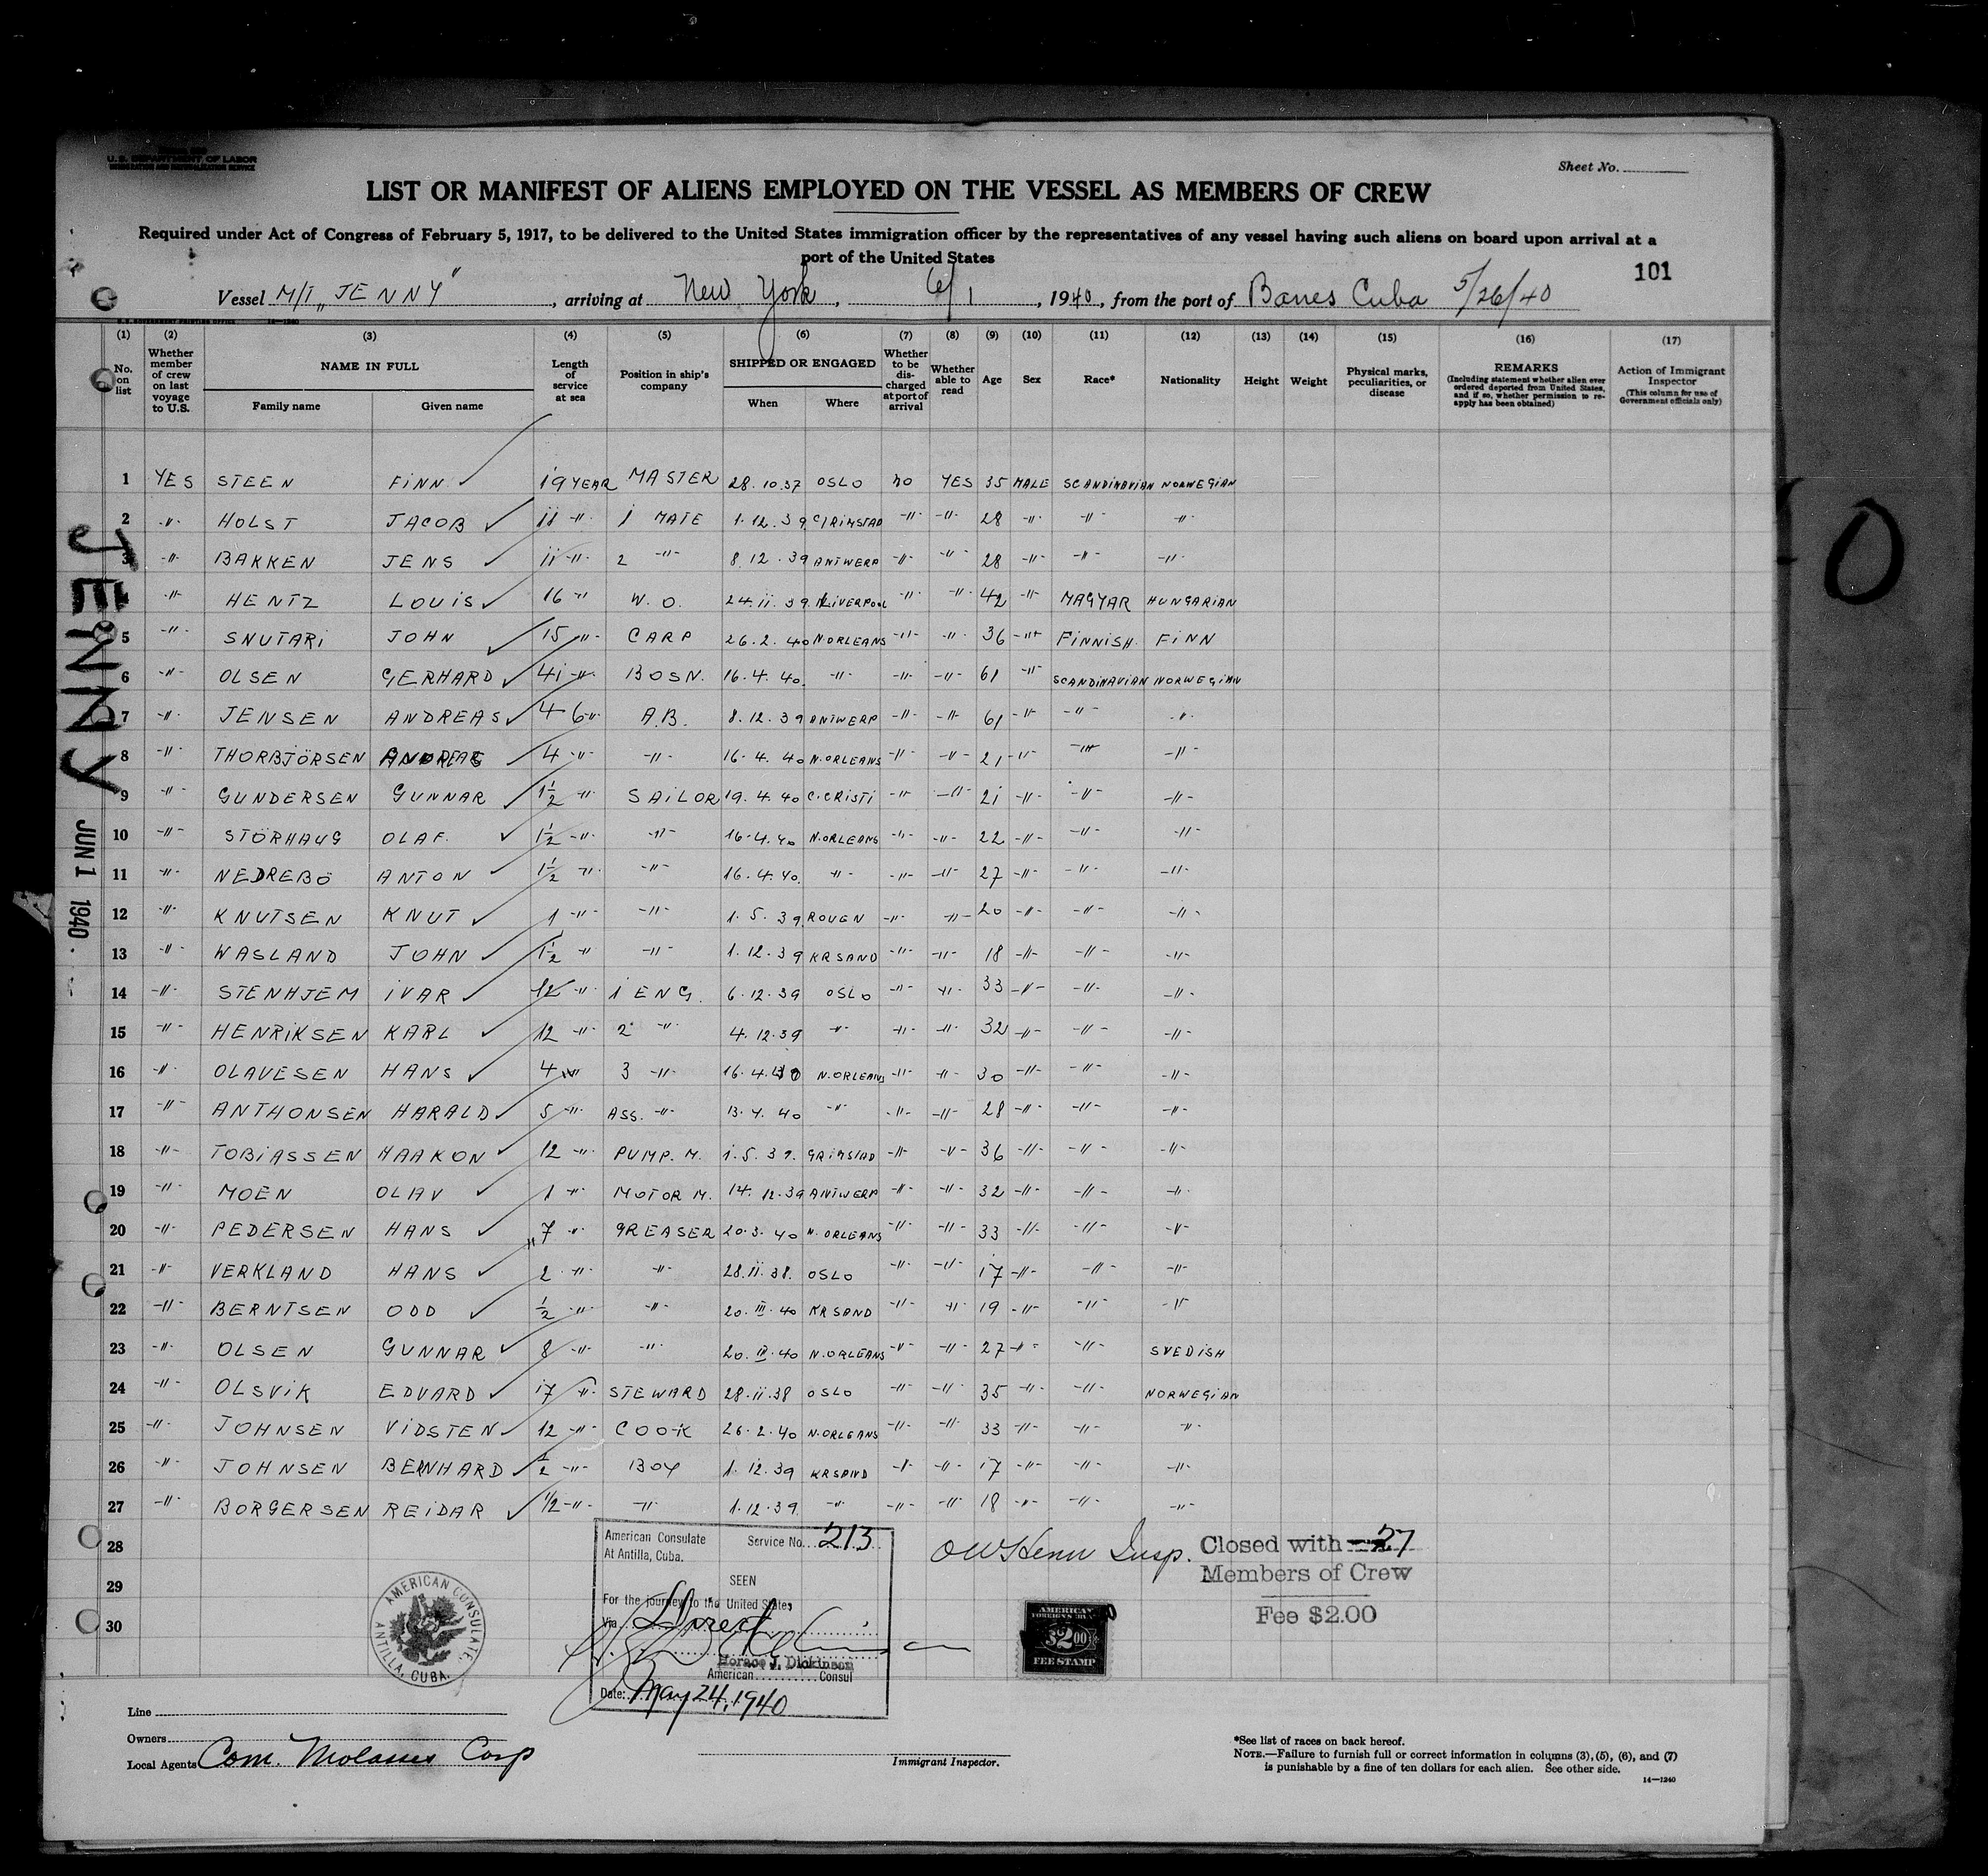 U.S. DEPARTMENT OF LABOR
IMMIGRATION AND NATURALIZATION SERVICE
Sheet No.
LIST OR MANIFEST OF ALIENS EMPLOYED ON THE VESSEL AS MEMBERS OF CREW
Required under Act of Congress of February 5, 1917, to be delivered to the United States immigration officer by the representatives of any vessel having such aliens on board upon arrival at a
port of the United States
101
Vessel M/T „JENNY", arriving at New York, 6/1, 1940, from the port of Banes Cuba 5/26/40
(1) (2) (3) (4) (5) (6) (7) (8) (9) (10) (11) (12) (13) (14) (15) (16) (17)
No. on list
Whether member of crew on last voyage to U.S.
NAME IN FULL
Family name Given name
Length of service at sea
Position in ship's company
SHIPPED OR ENGAGED
When Where
Whether to be discharged at port of arrival
Whether able to read
Age Sex Race* Nationality Height Weight
Physical marks, peculiarities, or disease
REMARKS
(Including statement whether alien ever ordered deported from United States, and if so, whether permission to reapply has been obtained)
Action of Immigrant Inspector
(This column for use of Government officials only)
1 YES STEEN FINN 19 YEAR MASTER 28.10.37 OSLO NO YES 35 MALE SCANDINAVIAN NORWEGIAN
2 -"- HOLST JACOB 11 -"- 1 MATE 1.12.39 GRIMSTAD -"- -"- 28 -"- -"- -"-
3 -"- BAKKEN JENS 11 -"- 2 -"- 8.12.39 ANTWERP -"- -"- 28 -"- -"- -"-
4 -"- HENTZ LOUIS 16 -"- W.O. 24.11.39 LIVERPOOL -"- -"- 42 -"- MAGYAR HUNGARIAN
5 -"- SNUTARI JOHN 15 -"- CARP 26.2.40 N.ORLEANS -"- -"- 36 -"- FINNISH. FINN
6 -"- OLSEN GERHARD 41 -"- BOSN. 16.4.40. -"- -"- -"- 61 -"- SCANDINAVIAN NORWEGIAN
7 -"- JENSEN ANDREAS 46 -"- A.B. 8.12.39 ANTWERP -"- -"- 61 -"- -"- -"-
8 -"- THORBJÖRSEN ANDREAS 4 -"- -"- 16.4.40 N.ORLEANS -"- -"- 21 -"- -"- -"-
9 -"- GUNDERSEN GUNNAR 1½ -"- SAILOR 19.4.40 C.CRISTI -"- -"- 21 -"- -"- -"-
10 -"- STÖRHAUG OLAF. 1½ -"- -"- 16.4.40 N.ORLEANS -"- -"- 22 -"- -"- -"-
11 -"- NEDREBÖ ANTON 1½ -"- -"- 16.4.40. -"- -"- -"- 27 -"- -"- -"-
12 -"- KNUTSEN KNUT 1 -"- -"- 1.5.39. ROUEN -"- -"- 20 -"- -"- -"-
13 -"- WASLAND JOHN 1½ -"- -"- 1.12.39 KRSAND -"- -"- 18 -"- -"- -"-
14 -"- STENHJEM IVAR 12 -"- 1 ENG. 6.12.39 OSLO -"- -"- 33 -"- -"- -"-
15 -"- HENRIKSEN KARL 12 -"- 2 -"- 4.12.39 -"- -"- -"- 32 -"- -"- -"-
16 -"- OLAVESEN HANS 4 -"- 3 -"- 16.4.40 N.ORLEANS -"- -"- 30 -"- -"- -"-
17 -"- ANTHONSEN HARALD 5 -"- ASS. -"- 13.4.40 -"- -"- -"- 28 -"- -"- -"-
18 -"- TOBIASSEN HAAKON 12 -"- PUMP. M. 1.5.39. GRIMSTAD -"- -"- 36 -"- -"- -"-
19 -"- MOEN OLAV 1 -"- MOTOR M. 14.12.39 ANTWERP -"- -"- 32 -"- -"- -"-
20 -"- PEDERSEN HANS 7 -"- GREASER 20.3.40 N.ORLEANS -"- -"- 33 -"- -"- -"-
21 -"- VERKLAND HANS 2 -"- -"- 28.11.38. OSLO -"- -"- 17 -"- -"- -"-
22 -"- BERNTSEN ODD ½ -"- -"- 20.III.40 KRSAND -"- -"- 19 -"- -"- -"-
23 -"- OLSEN GUNNAR 8 -"- -"- 20.III.40 N.ORLEANS -"- -"- 27 -"- -"- SVEDISH
24 -"- OLSVIK EDVARD 17 -"- STEWARD 28.11.38 OSLO -"- -"- 35 -"- -"- NORWEGIAN
25 -"- JOHNSEN VIDSTEN 12 -"- COOK 26.2.40 N.ORLEANS -"- -"- 33 -"- -"- -"-
26 -"- JOHNSEN BERNHARD ½ -"- BOY 1.12.39 KRSAND -"- -"- 17 -"- -"- -"-
27 -"- BORGERSEN REIDAR 1/2 -"- -"- 1.12.39. -"- -"- -"- 18 -"- -"- -"-
28
29
30
JENNY
JUN 1 1940
American Consulate
At Antilla, Cuba.
Service No. 213
SEEN
For the journey to the United States
Via Direct
Horace J. Dickinson
American Consul
Date: May 24, 1940
AMERICAN CONSULATE, ANTILLA, CUBA.
Insp.
Closed with 27
Members of Crew
Fee $2.00
AMERICAN
$2.00
FEE STAMP
Line
Owners
Local Agents Com. Molasses Corp
Immigrant Inspector.
*See list of races on back hereof.
NOTE.—Failure to furnish full or correct information in columns (3), (5), (6), and (7)
is punishable by a fine of ten dollars for each alien. See other side.
14—1240
0